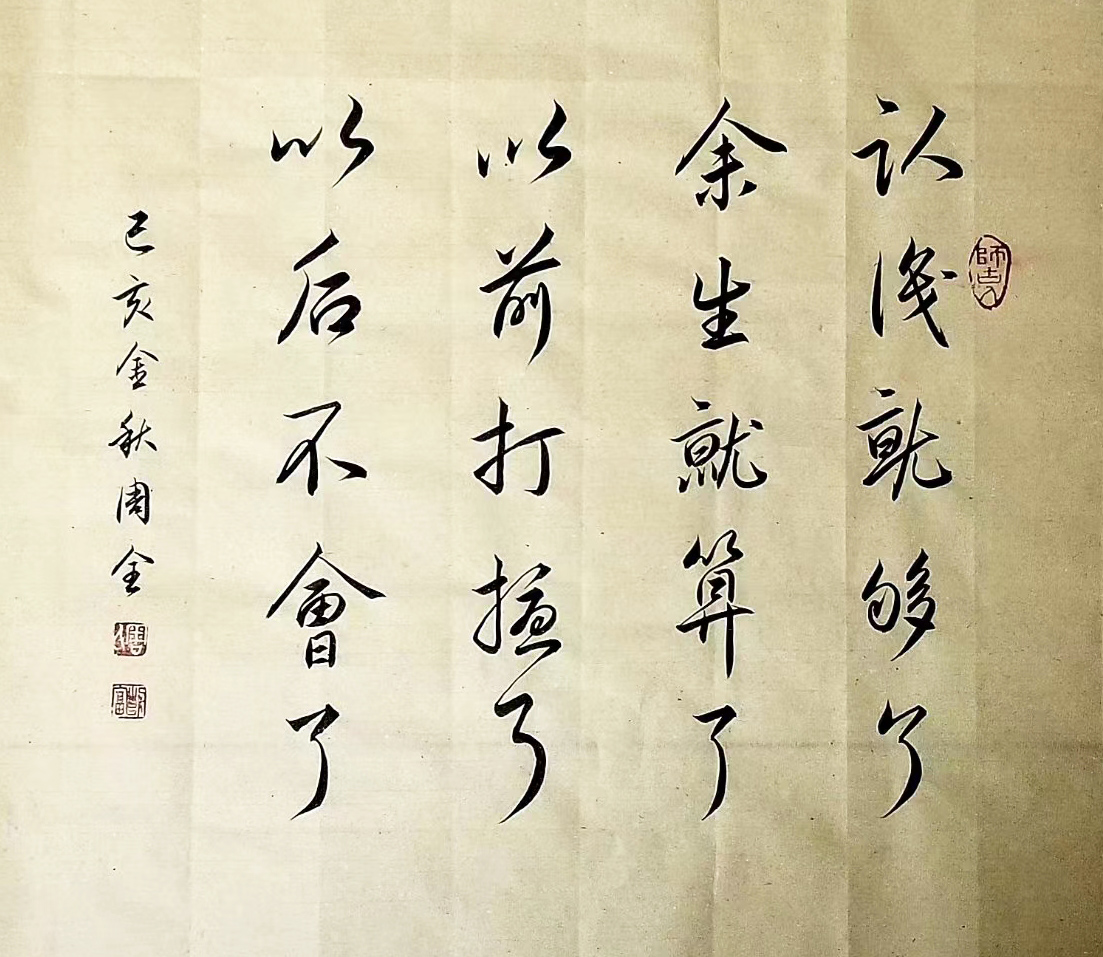 师古
认識就够了
余生就算了
以前打擾了
以后不會了
己亥金秋周全